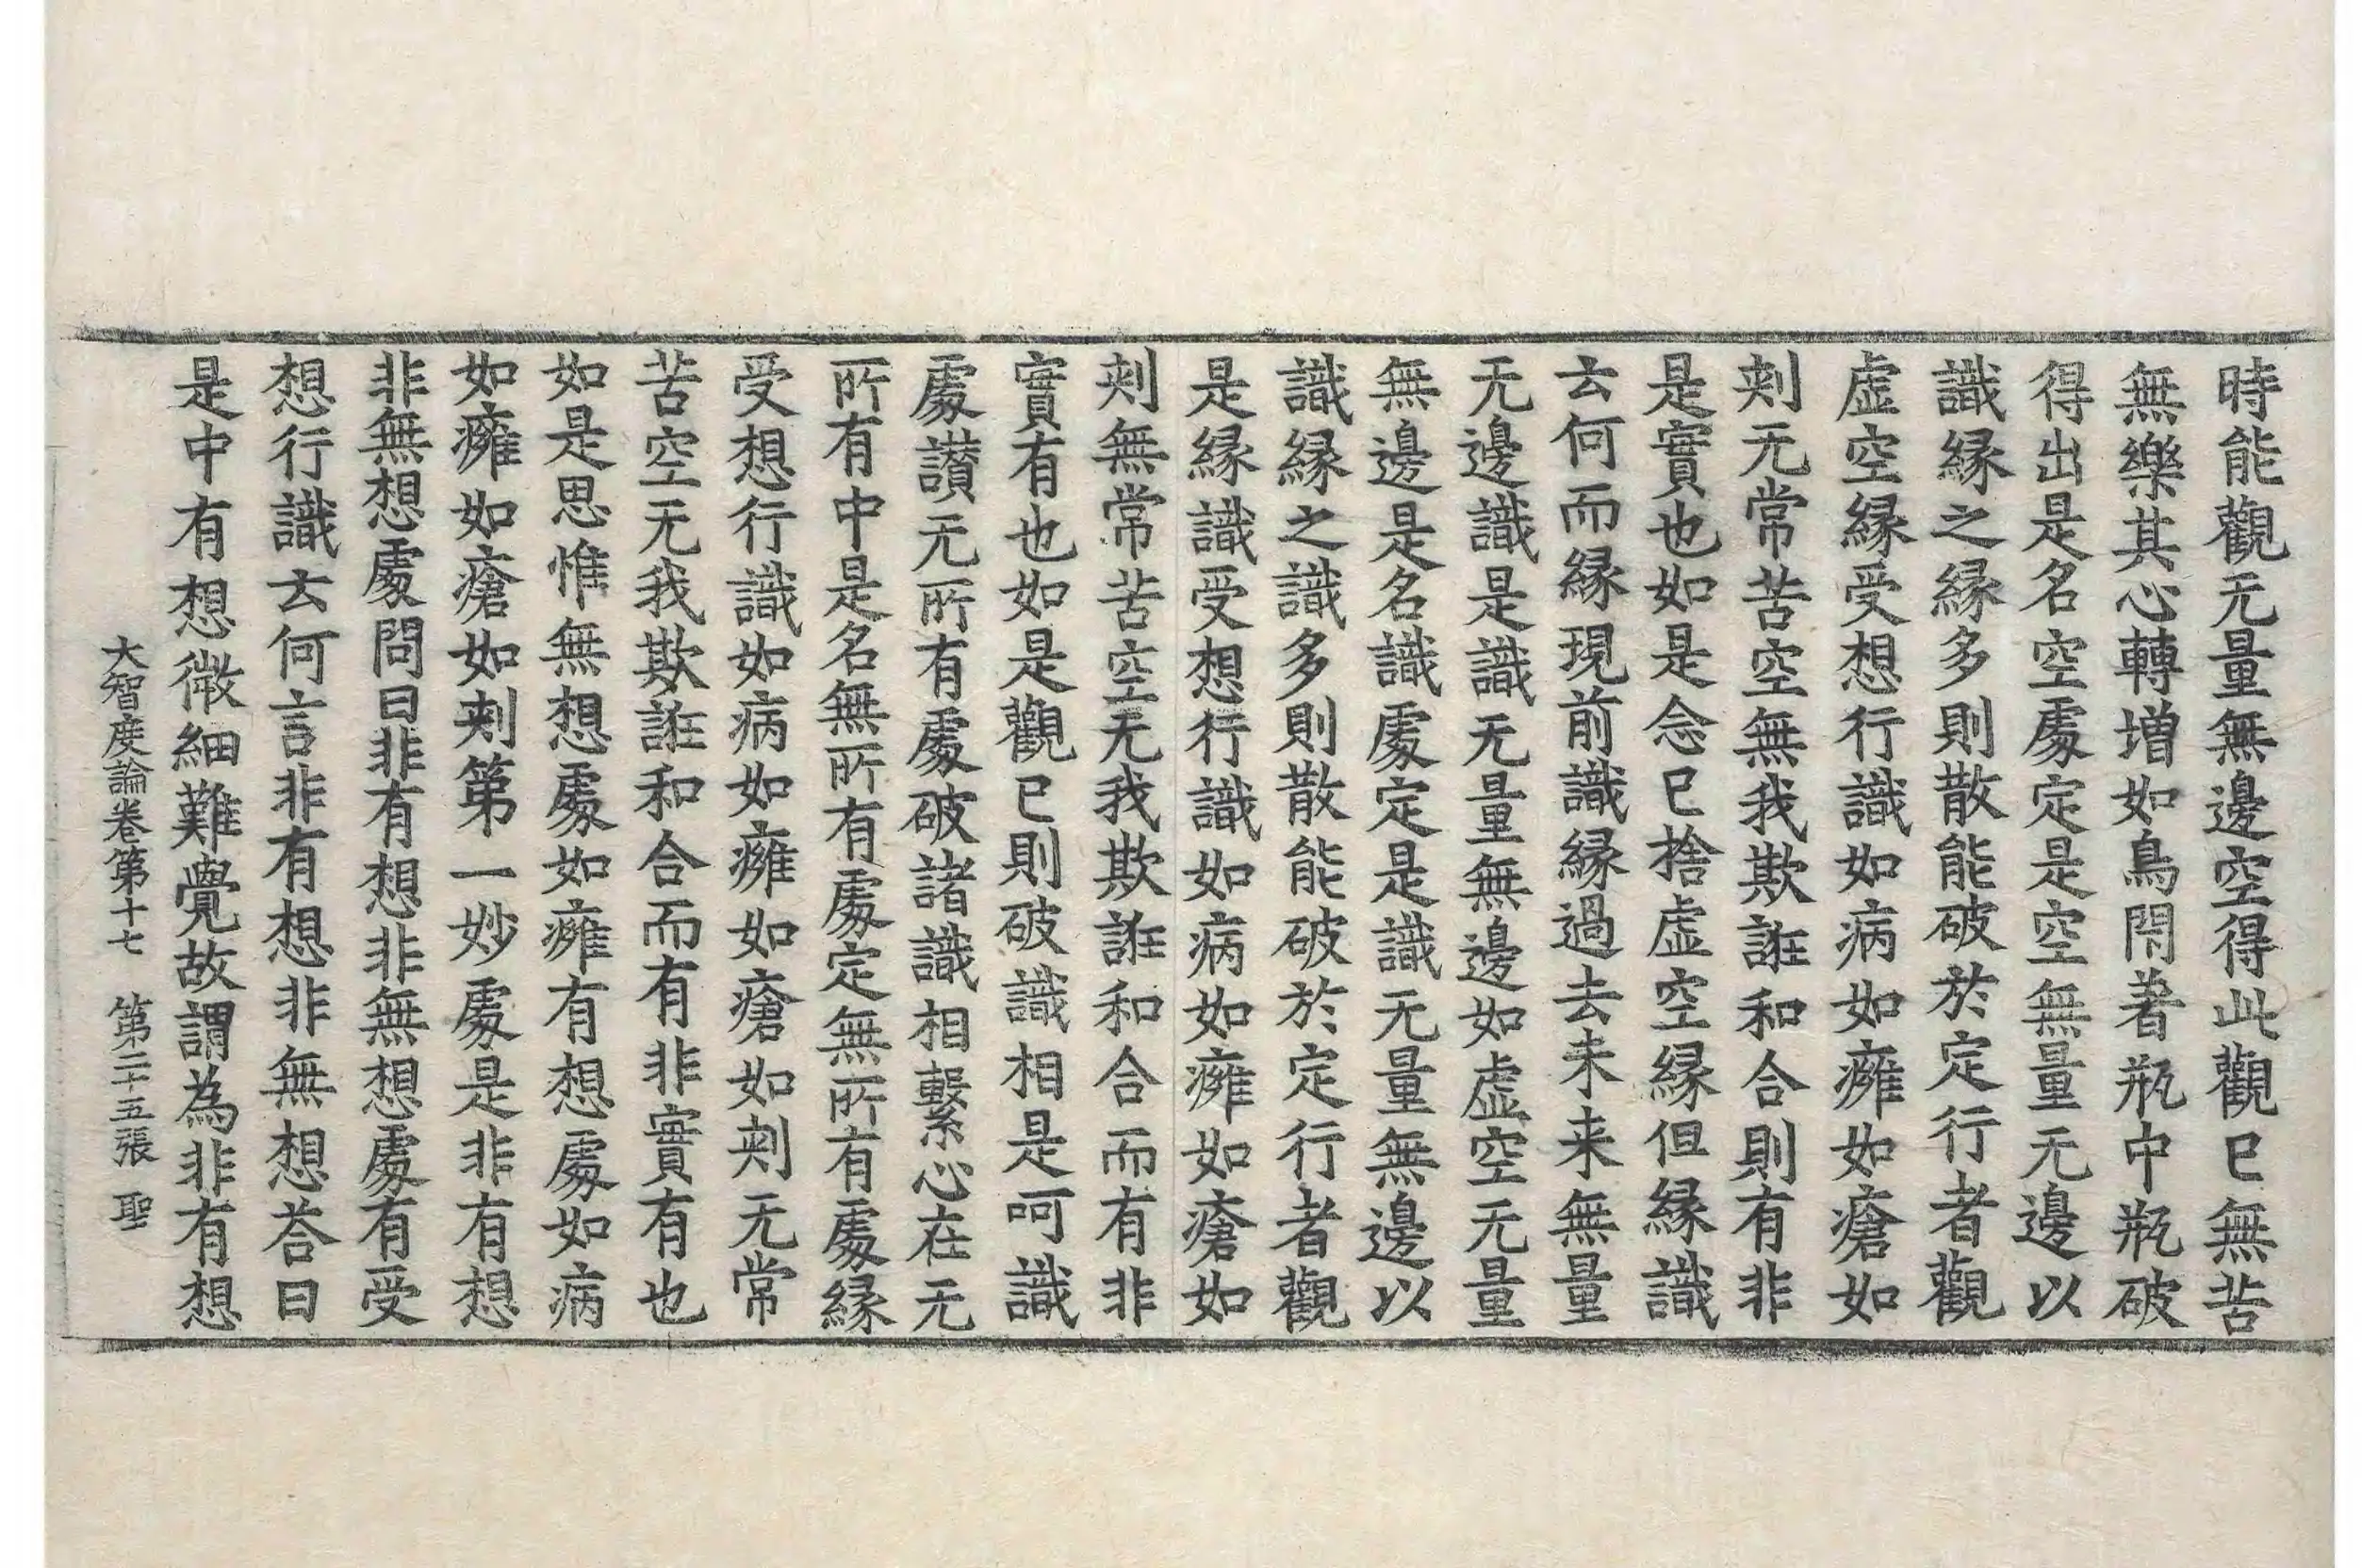 時能觀无量無邊空得此觀已無苦
無樂其心轉增如鳥閇著瓶中瓶破
得出是名空處定是空無量无邊以
識緣之緣多則散能破於定行者觀
虛空緣受想行識如病如癰如瘡如
刾无常苦空無我欺誑和合則有非
是實也如是念已捨虛空緣但緣識
云何而緣現前識緣過去未来無量
无邊識是識无量無邊如虛空无量
無邊是名識處定是識无量無邊以
識緣之識多則散能破於定行者觀
是緣識受想行識如病如癰如瘡如
刾無常苦空无我欺誑和合而有非
實有也如是觀已則破識相是呵識
處讃无所有處破諸識相繫心在无
所有中是名無所有處定無所有處緣
受想行識如病如癰如瘡如刾无常
苦空无我欺誑和合而有非實有也
如是思惟無想處如癰有想處如病
如癰如瘡如刾第一妙處是非有想
非無想處問曰非有想非無想處有受
想行識云何言非有想非無想荅曰
是中有想微細難覺故謂為非有想
大智度論卷第十七 第二十五張 聖